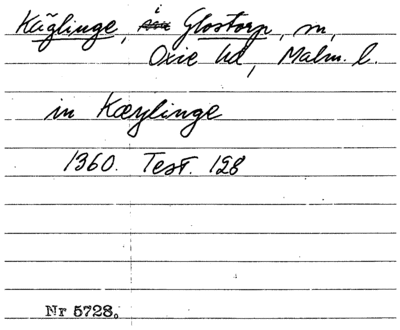 Käglinge, i Glostorp, sn,
Oxie hd, Malm. l.
in Kæylinge
1360. Test. 128
Nr 5728.